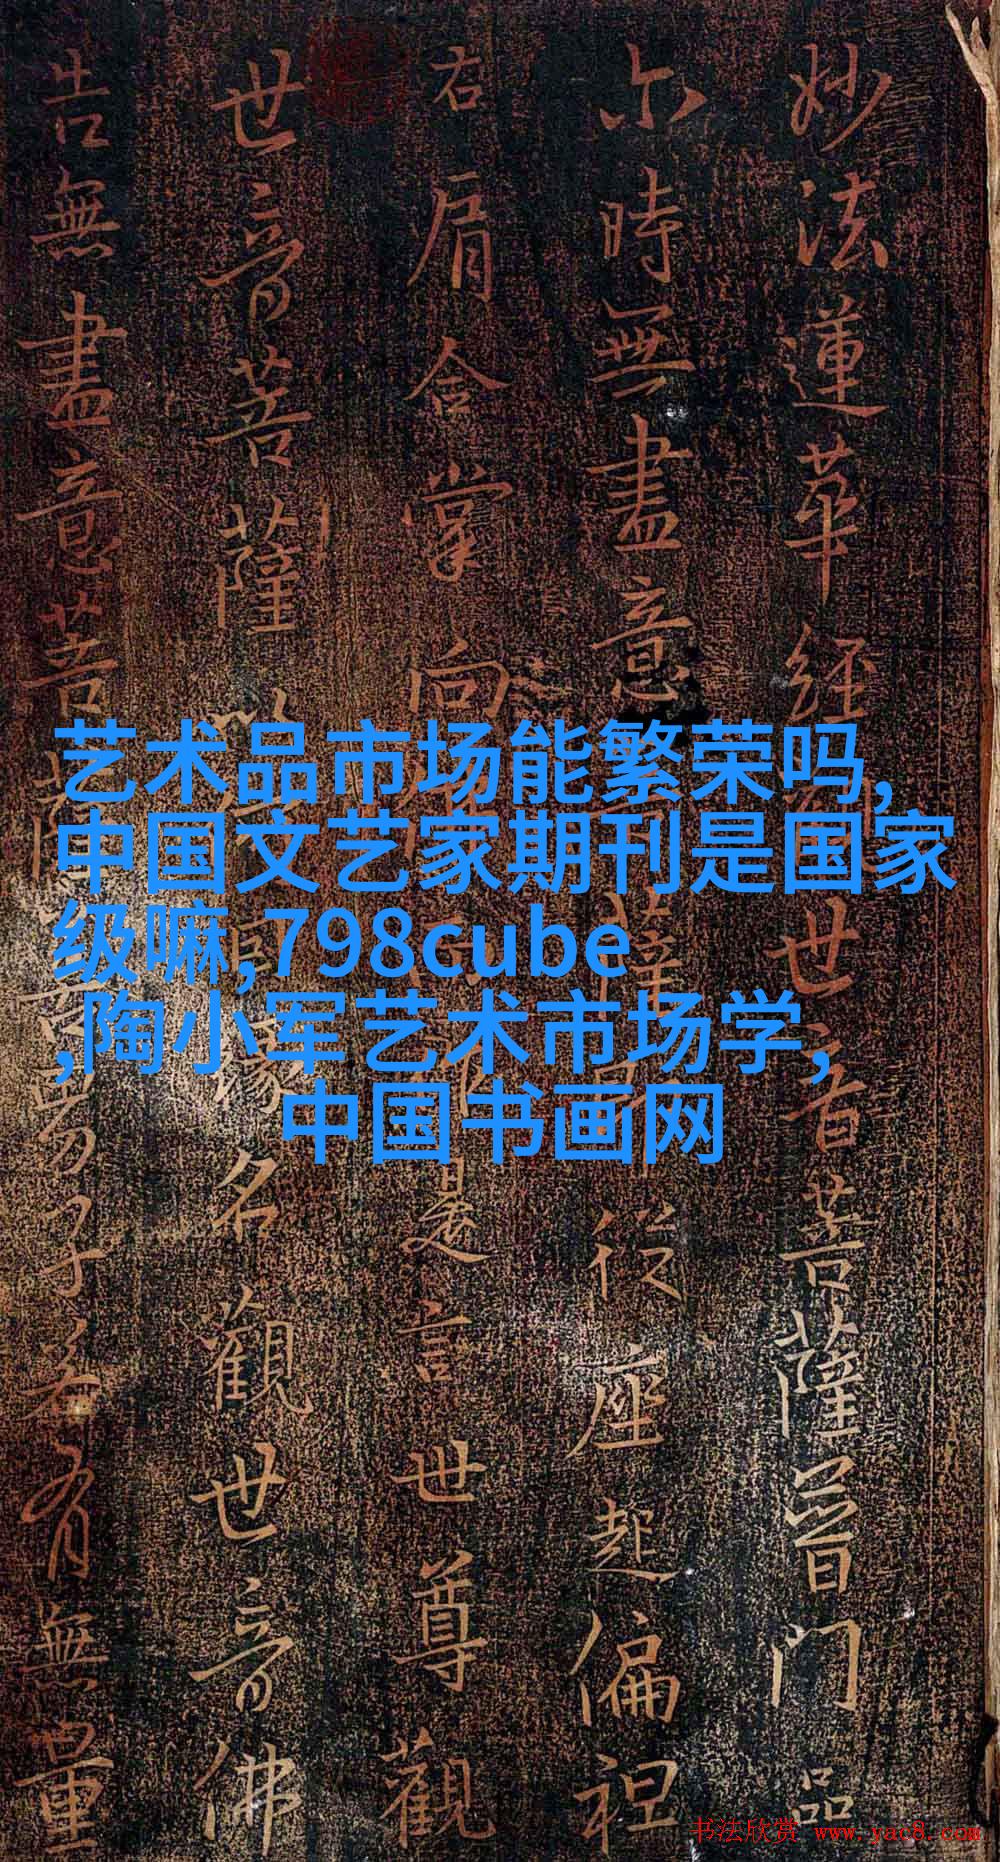 妙法蓮華經世音菩薩普門品
尒時無盡意薩從座起偏袒
右肩合掌向是言世尊觀
世音菩薩緣名觀世音佛
告無盡意菩薩善男子若有無量
艺术品市场能繁荣吗,
中国文艺家期刊是国家
级嘛,798cube
,陶小军艺术市场学,
中国书画网
书法欣赏 www.yac8.com